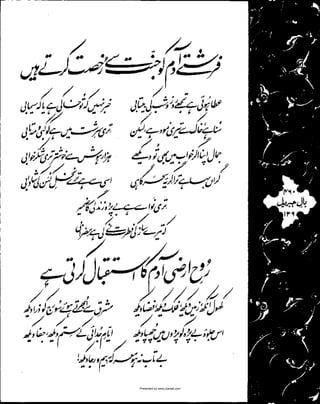 فرشتے آدم کو جنت سے رخصت کرتے ہیں
عطا ہوئی ہے تجھے روز و شب کی بیتابی
خبر نہیں کہ تو خاکی ہے یا کہ سیمابی
سنا ہے خاک سے تیری نمود ہے لیکن
تری سرشت میں ہے کوکبی و مہتابی
جمال اپنا اگر خواب میں بھی تو دیکھے
ہزار ہوش سے خوشتر تری شکر خوابی
گراں بہا ہے ترا گریۂ سحر گاہی
اسی سے ہے ترے نخل کہن کی شادابی
تری نوا سے ہے بے پردہ زندگی کا ضمیر
کہ تیرے ساز کی فطرت نے کی ہے مضرابی
روح ارضی آدم کا استقبال کرتی ہے
کھول آنکھ زمیں دیکھ فلک دیکھ فضا دیکھ
مشرق سے ابھرتے ہوئے سورج کو ذرا دیکھ
اس جلوۂ بے پردہ کو پردوں میں چھپا دیکھ
ایام جدائی کے ستم دیکھ، جفا دیکھ
بے تاب نہ ہو معرکۂ بیم و رجا دیکھ!
بال جبریل
Presented by www.ziaraat.com